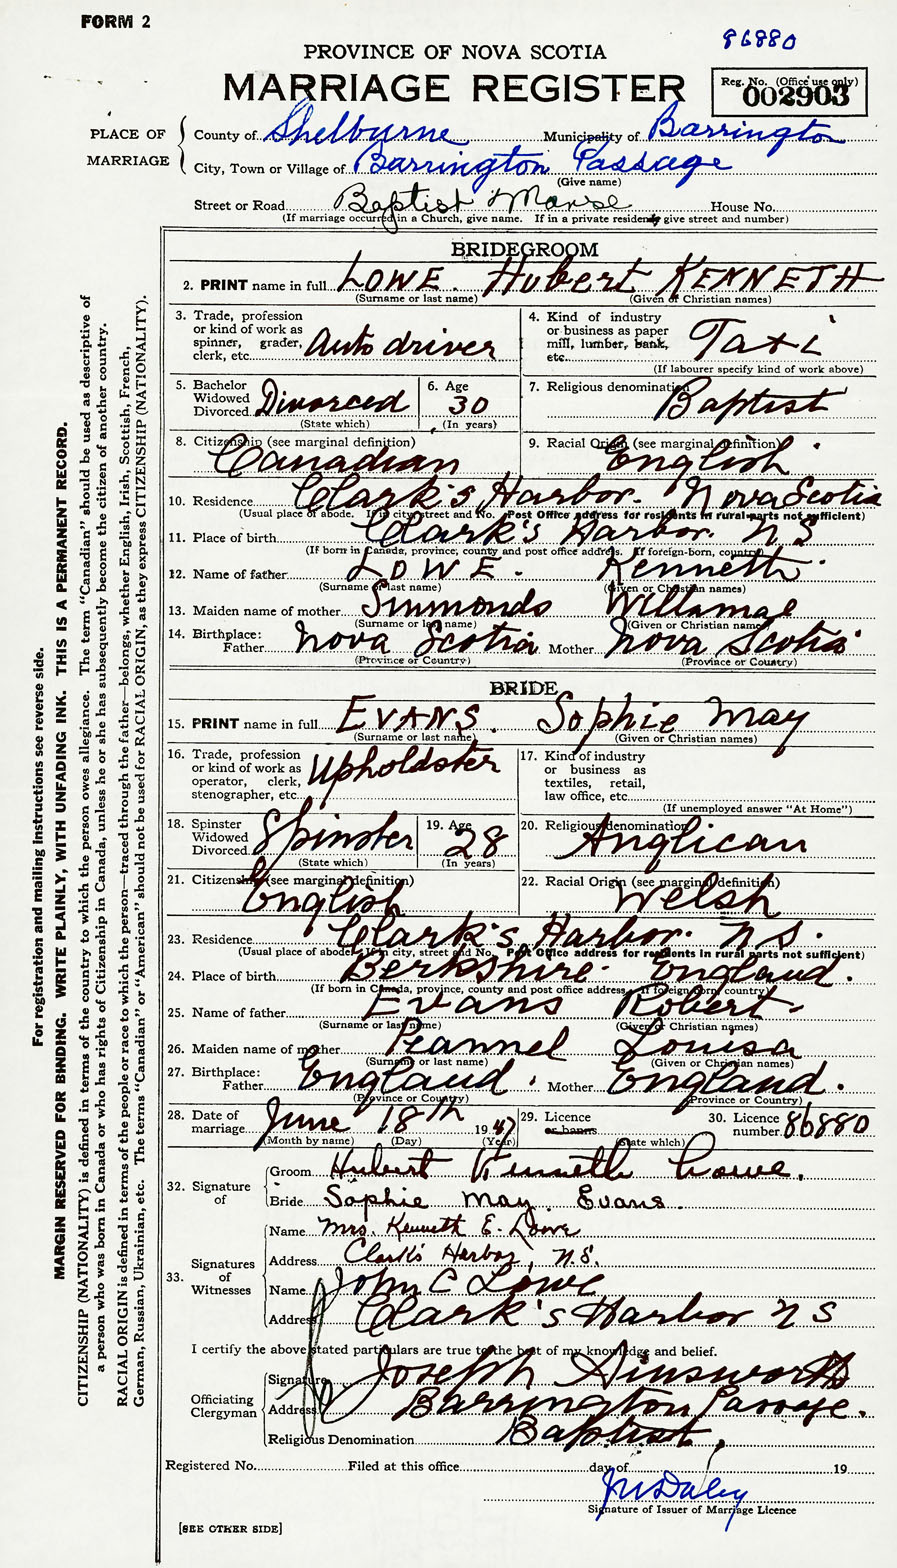 FORM 2
86880
PROVINCE OF NOVA SCOTIA
MARRIAGE REGISTER
Reg. No. (Office use only)
002903
PLACE OF MARRIAGE
County of Shelburne Municipality of Barrington
City, Town or Village of Barrington Passage
(Give name)
Street or Road Baptist Manse House No.
(If marriage occurred in a Church, give name. If in a private residence give street and number)
BRIDEGROOM
2. PRINT name in full LOWE. Hubert KENNETH
(Surname or last name) (Given or Christian names)
3. Trade, profession or kind of work as spinner, grader, clerk, etc. Auto driver
4. Kind of industry or business as paper mill, lumber, bank, etc. Taxi
(If labourer specify kind of work above)
5. Bachelor Widowed Divorced Divorced
(State which)
6. Age 30
(In years)
7. Religious denomination Baptist
8. Citizenship (see marginal definition) Canadian
9. Racial Origin (see marginal definition) English
10. Residence Clark's Harbor. Nova Scotia
(Usual place of abode. If in city, street and No. Post Office address for residents in rural parts not sufficient)
11. Place of birth Clark's Harbor. N S
(If born in Canada, province, county and post office address. If foreign-born, country)
12. Name of father LOWE. Kenneth
(Surname or last name) (Given or Christian names)
13. Maiden name of mother Simmonds Willamae
(Surname or last name) (Given or Christian names)
14. Birthplace: Father Nova Scotia Mother Nova Scotia
(Province or Country) (Province or Country)
BRIDE
15. PRINT name in full EVANS. Sophie May
(Surname or last name) (Given or Christian names)
16. Trade, profession or kind of work as operator, clerk, stenographer, etc. Upholdster
17. Kind of industry or business as textiles, retail, law office, etc.
(If unemployed answer "At Home")
18. Spinster Widowed Divorced Spinster
(State which)
19. Age 28
(In years)
20. Religious denomination Anglican
21. Citizenship (see marginal definition) English
22. Racial Origin (see marginal definition) Welsh
23. Residence Clark's Harbor. N S.
(Usual place of abode. If in city, street and No. Post Office address for residents in rural parts not sufficient)
24. Place of birth Berkshire. England.
(If born in Canada, province, county and post office address. If foreign born, country)
25. Name of father Evans Robert
(Surname or last name) (Given or Christian names)
26. Maiden name of mother Peannel Louisa
(Surname or last name) (Given or Christian names)
27. Birthplace: Father England. Mother England.
(Province or Country) (Province or Country)
28. Date of marriage June 18th 1947
(Month by name) (Day) (Year)
29. Licence or banns
(State which)
30. Licence number 86880
32. Signature of
Groom Hubert Kenneth Lowe.
Bride Sophie May Evans.
33. Signatures of Witnesses
Name Mrs. Kenneth E. Lowe
Address Clark's Harbor, N.S.
Name John C Lowe
Address Clark's Harbor N S
I certify the above stated particulars are true to the best of my knowledge and belief.
Officiating Clergyman
Signature Joseph Ainsworth
Address Barrington Passage.
Religious Denomination Baptist,
Registered No. Filed at this office day of 19
Signature of Issuer of Marriage Licence
[SEE OTHER SIDE]
For registration and mailing instructions see reverse side.
MARGIN RESERVED FOR BINDING. WRITE PLAINLY, WITH UNFADING INK. THIS IS A PERMANENT RECORD.
CITIZENSHIP (NATIONALITY) is defined in terms of the country to which the person owes allegiance. The term "Canadian" should be used as descriptive of
a person who was born in Canada or who has rights of Citizenship in Canada, unless he or she has subsequently become the citizen of another country.
RACIAL ORIGIN is defined in terms of the people or race to which the person—traced through the father—belongs, whether English, Irish, Scottish, French,
German, Russian, Ukrainian, etc. The terms "Canadian" or "American" should not be used for RACIAL ORIGIN, as they express CITIZENSHIP (NATIONALITY).